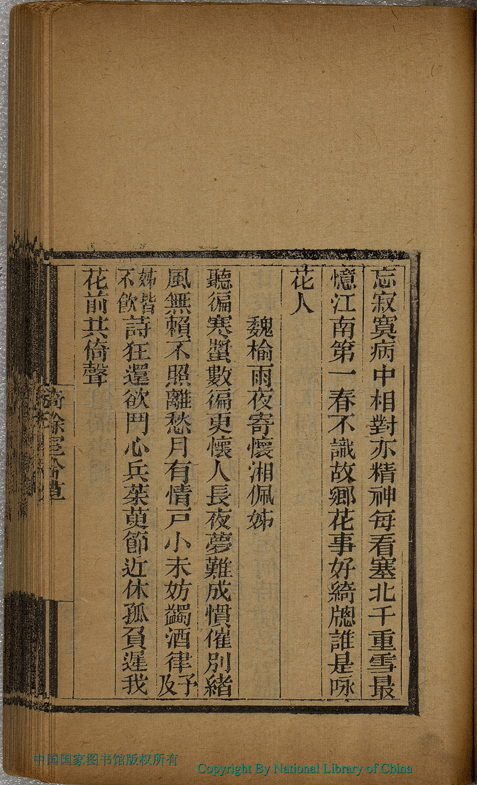 忘寂寞病中相對亦精神每看塞北千重雪最
憶江南第一春不識故鄉花事好綺牕誰是咏
花人
魏榆雨夜寄懷湘佩姊
聽徧寒螿數徧更懷人長夜夢難成慣催別緒
風無賴不照離愁月有情戸小未妨蠲酒律予及
姊皆不飲詩狂還欲鬥心兵茱萸節近休孤負遲我
花前共倚聲
中国国家图书馆版权所有
Copyright By National Library of China